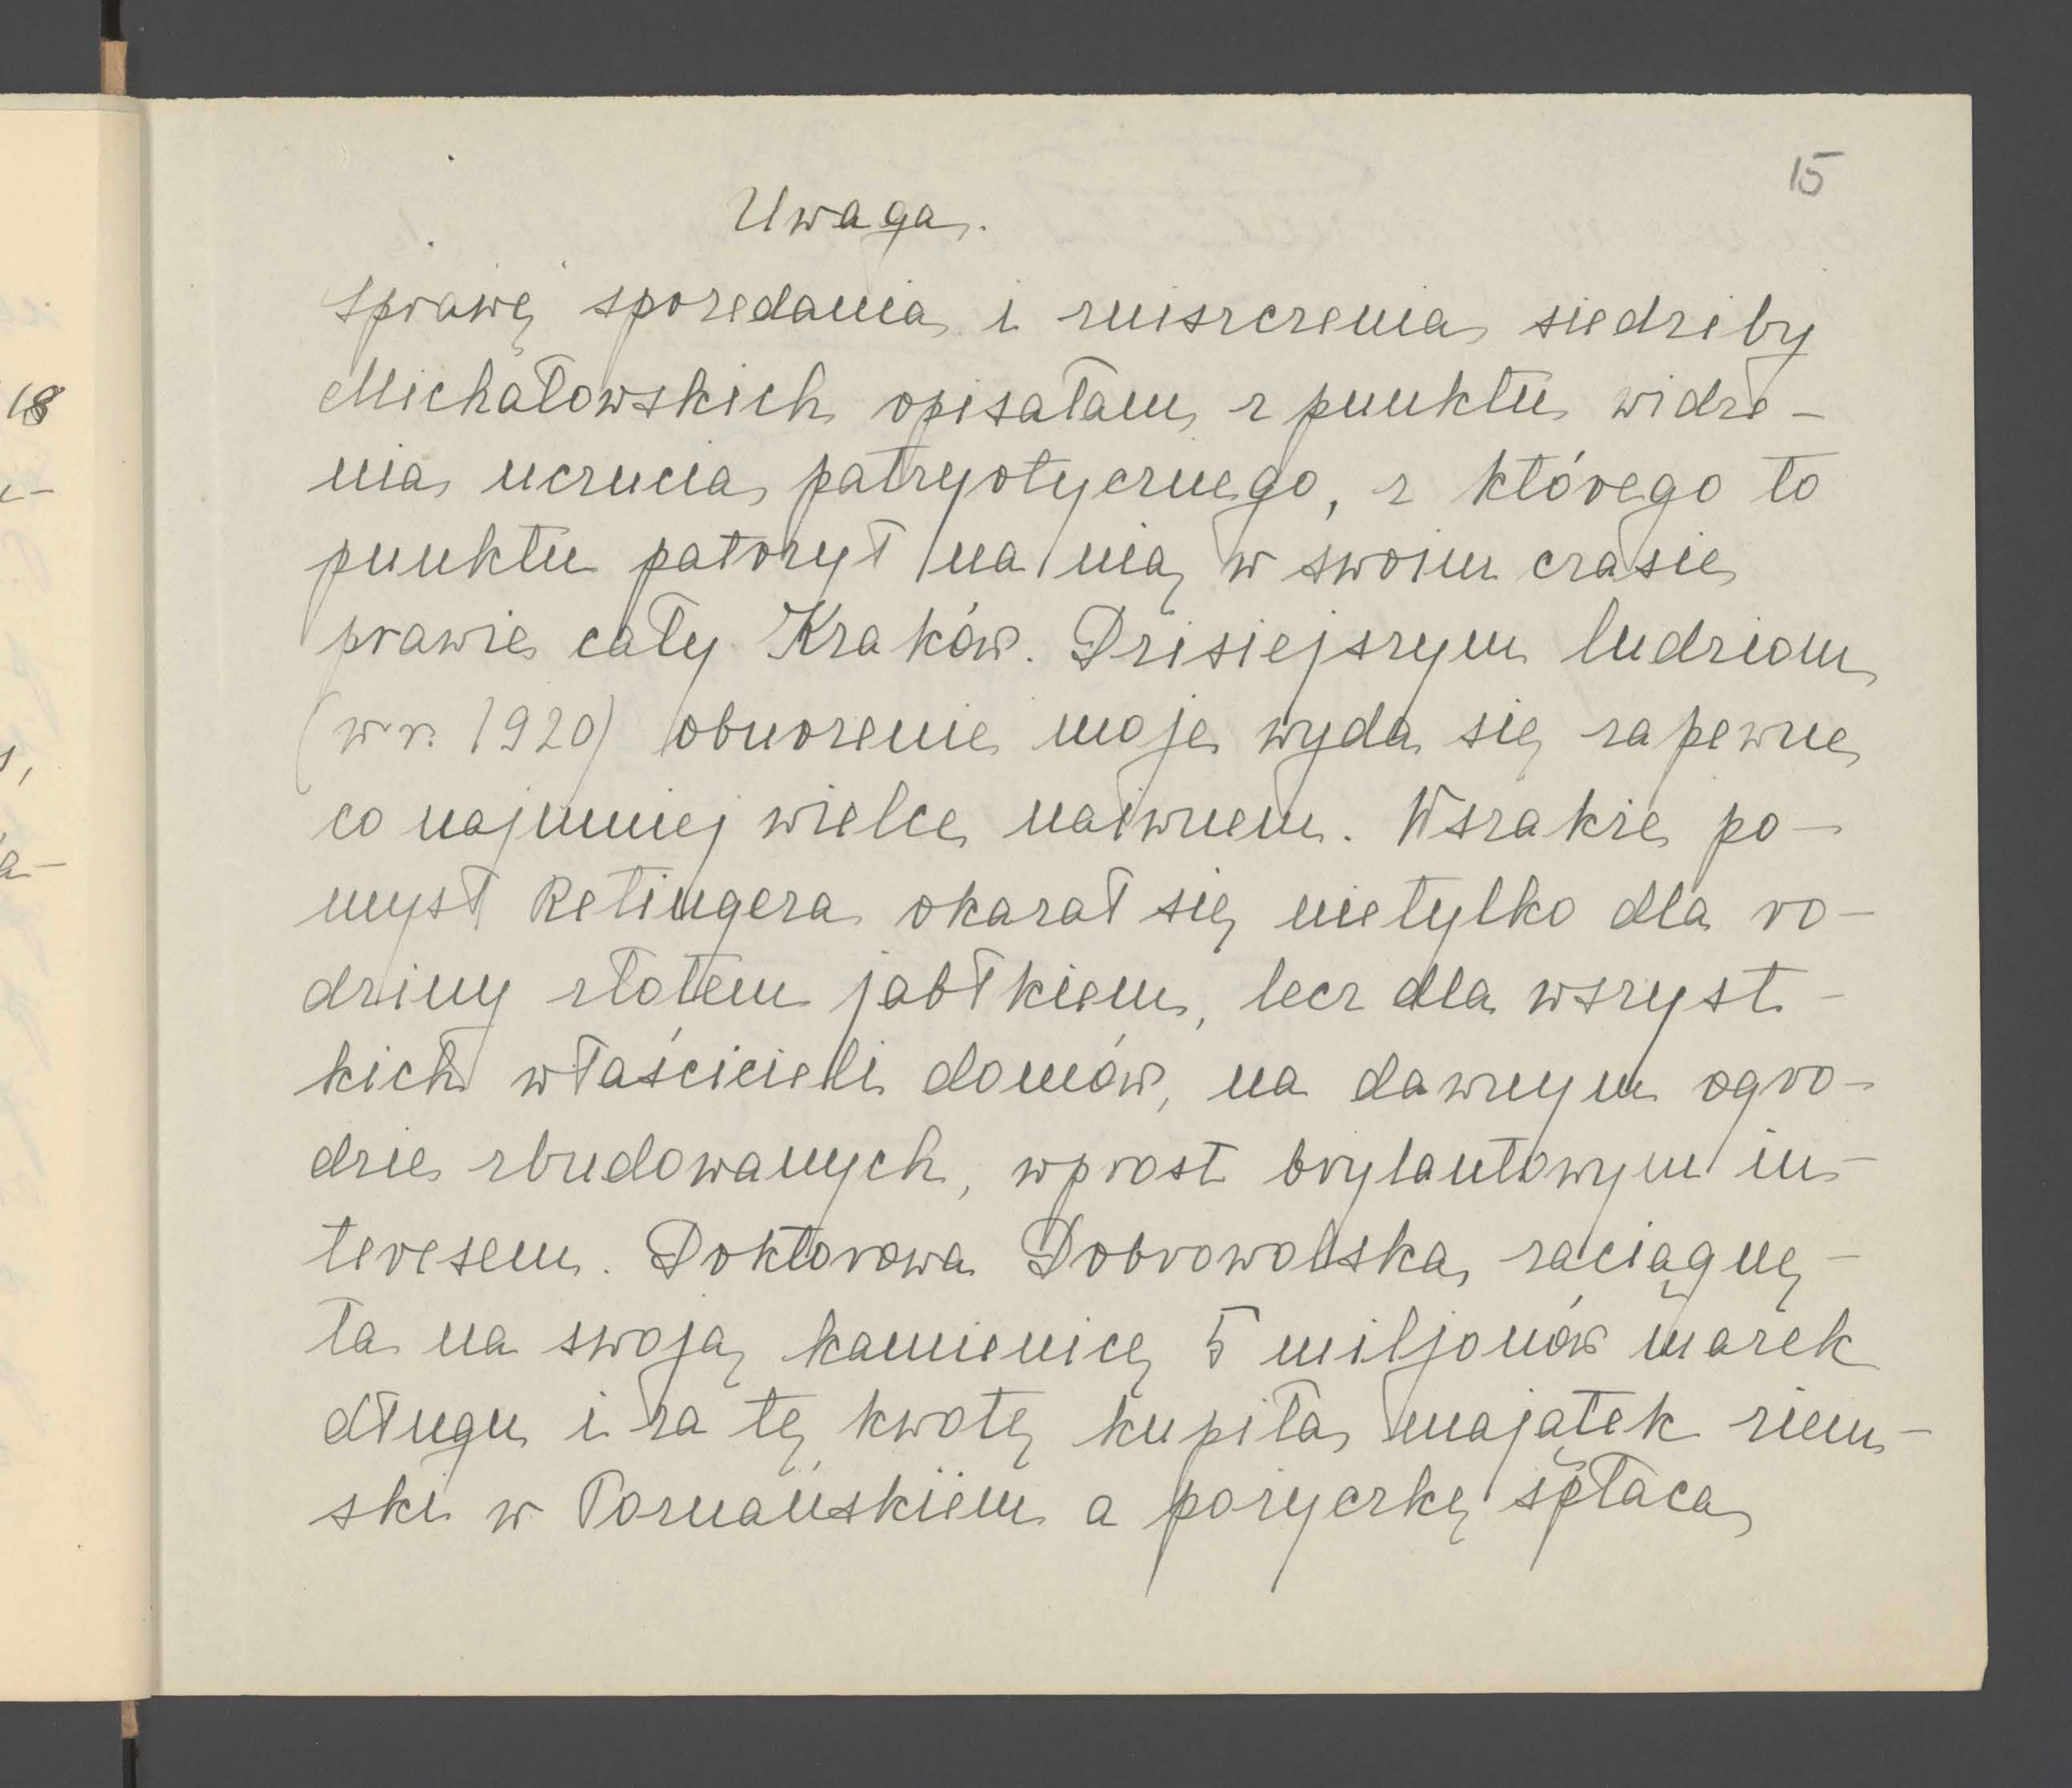 15
Uwaga.
Sprawę sporzedania i zniszczenia siedziby
Michałowskich opisałam z punktu widze-
nia uczucia patryotycznego, z którego to
punktu patrzył na nią w swoim czasie
prawie cały Kraków. Dzisiejszym ludziom
(w r. 1920) oburzenie moje wyda się zapewne
co najmniej wielce naiwnem. Wszakże po-
mysł Retingera okazał się nietylko dla ro-
dziny złotem jabłkiem, lecz dla wszyst-
kich właścicieli domów, na dawnym ogro-
dzie zbudowanych, wprost brylantowym in-
teresem. Doktorowa Dobrowolska zaciągnę-
ła na swoją kamienicę 5 miljonów marek
długu i za tę kwotę kupiła majątek ziem-
ski w Poznańskiem a pożyczkę spłaca
18